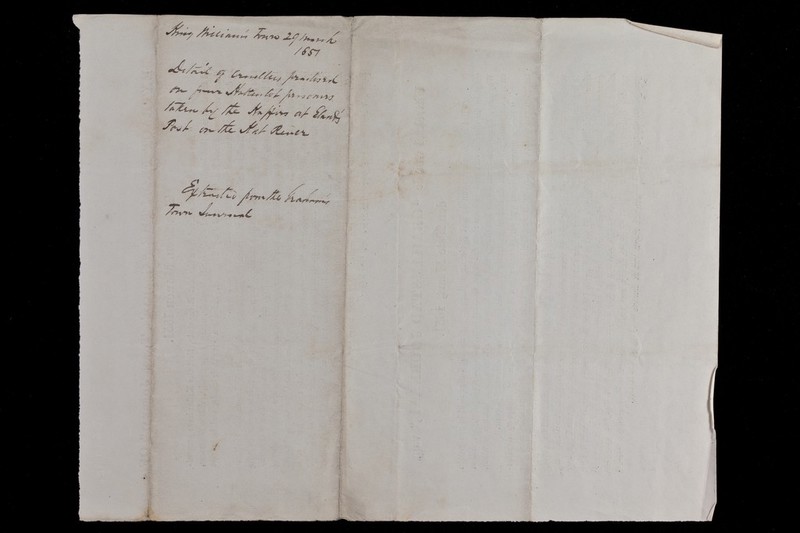 King Williams Town 29 March
1851
Detail of Cruelties practised
on four Hottentot prisoners
taken by the Kaffirs at Elands
Post on the Kat River
Extracted from the Grahams
Town Journal